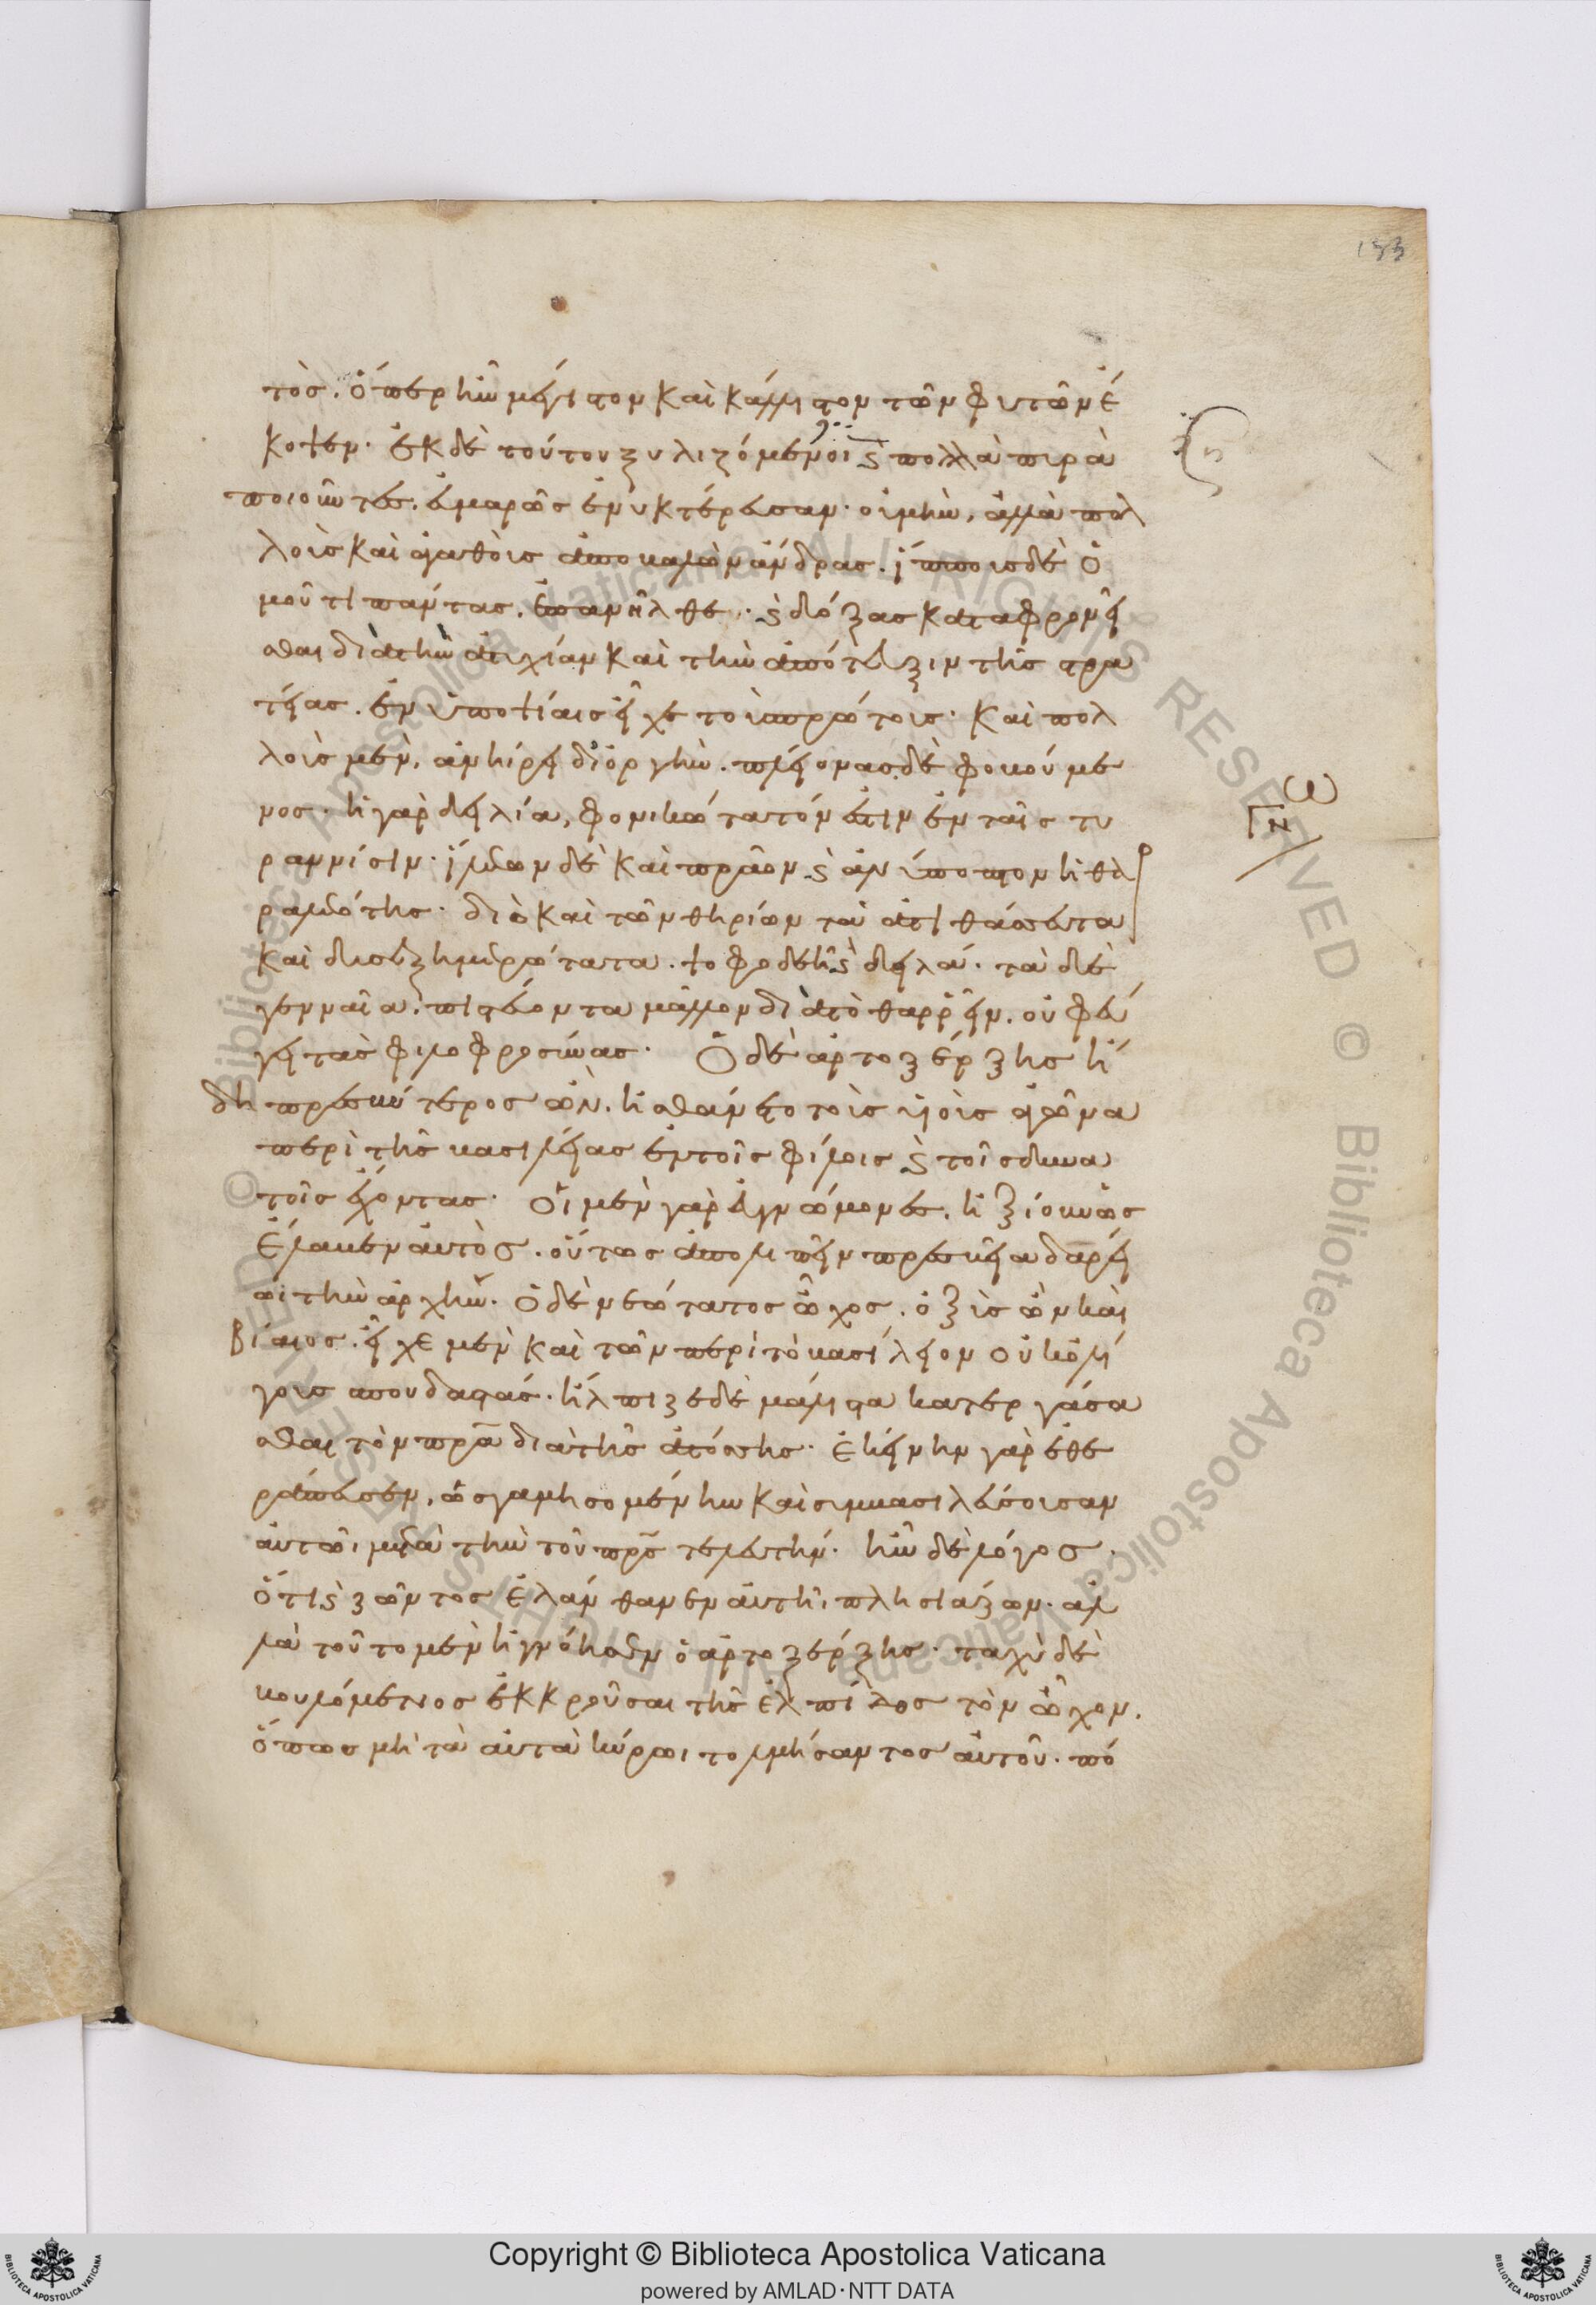 153
τὸς. ὅπερ ἦν μέγιστον καὶ κάλλιστον τῶν φυτῶν ἔ
κοψεν. ἐκ δὲ τούτου ξυλιζόμενοι ϗ πολλὰ πυρὰ
ποιοῦντες. εὐμαρῶς ἐνυκτέρευσαν. οὐ μὴν, ἀλλὰ πολ
λοὺς καὶ ἀγαθοὺς ἀποβαλὼν ἄνδρας. ἵππους δὲ ὁ
μοῦ τι πάντας. ἐπανῆλθε. ϗ δόξας καταφρονεῖ
σθαι διὰ τὴν ἀτυχίαν καὶ τὴν ἀπότευξιν τῆς στρα
τείας. ἐν ὑποψίαις εἶχε τοὺς πρώτους. καὶ πολ
λοὺς μὲν, ἀνήρει δι' ὀργὴν. πλείονας δὲ φοβούμε
νος. ἡ γὰρ δειλία, φονικώτατόν ἐστιν ἐν ταῖς τυ
ραννίσιν. ἵλεων δὲ καὶ πρᾶον ϗ ἀνύποπτον ἡ θαρ
ραλεότης. διὸ καὶ τῶν θηρίων τὰ ἀτιθάσευτα
καὶ δυσεξημερώτατα. ψοφοδεῆ ϗ δειλά. τὰ δὲ
γενναῖα. πιστεύοντα μᾶλλον διὰ τὸ θαρρεῖν. οὐ φεύ
γει τὰς φιλοφροσύνας. Ὁ δὲ ἀρτοξέρξης ἤ
δη πρεσβύτερος ὢν. ἠσθάνετο τοὺς υἱοὺς ἀγῶνα
περὶ τῆς βασιλείας ἐν τοῖς φίλοις ϗ τοῖς δυνα
τοῖς ἔχοντας. Οἱ μὲν γὰρ εὐγνώμονες. ἠξίουν ὡς
ἔλαβεν αὐτὸς. οὕτως ἀπολιπεῖν πρεσβεῖα δαρεί
ωι τὴν ἀρχὴν. ὁ δὲ νεώτατος ὦχος. ὀξὺς ὢν καὶ
βίαιος. εἶχε μὲν καὶ τῶν περὶ τὸ βασίλειον οὐκ ὀλί
γους σπουδαστάς. ἤλπιζε δὲ μάλιστα κατεργάσα
σθαι τὸν πρα διὰ τῆς ἀτόσσης. ἐκείνην γὰρ ἐθε
ράπευσεν, ὡς γαμησομένην καὶ συμβασιλεύσουσαν
αὐτῶι μετὰ τὴν τοῦ προς τελευτήν. ἦν δὲ λόγος.
ὅτι ϗ ζῶντος ἐλάνθανεν αὐτῆι πλησιάζων. ἀλ
λὰ τοῦτο μὲν ἠγνόησεν ὁ ἀρτοξέρξης. ταχὺ δὲ
βουλόμενος ἐκκροῦσαι τῆς ἐλπίδος τὸν ὦχον.
ὅπως μὴ τὰ αὐτὰ κύρωι τολμήσαντος αὐτοῦ. πό
Copyright © Biblioteca Apostolica Vaticana
powered by AMLAD·NTT DATA